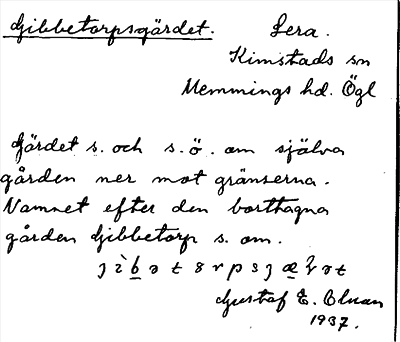 Gibbetorpsgärdet. Lera.
Kimstads sn
Memmings hd. Ögl
Gärdet s. och s.ö. om själva
gården ner mot gränserna.
Namnet efter den borttagna
gården Gibbetorp s. om.
Gustaf E. Olsson
1937.